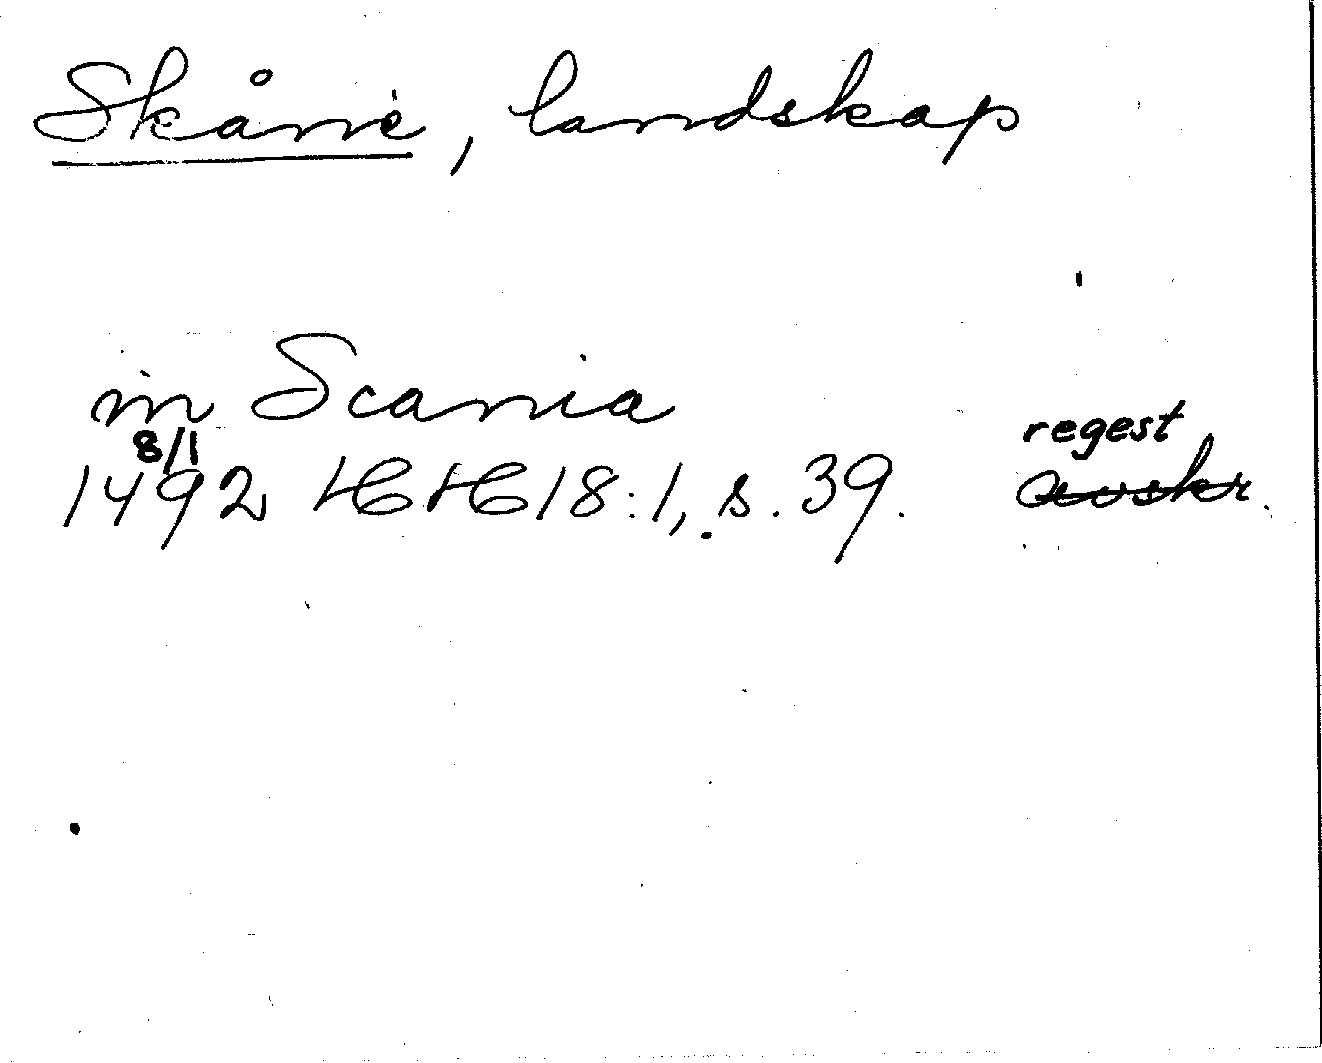 Skåne, landskap
in Scania
8/1
regest
1492 HH 18:1, s. 39. avskr.